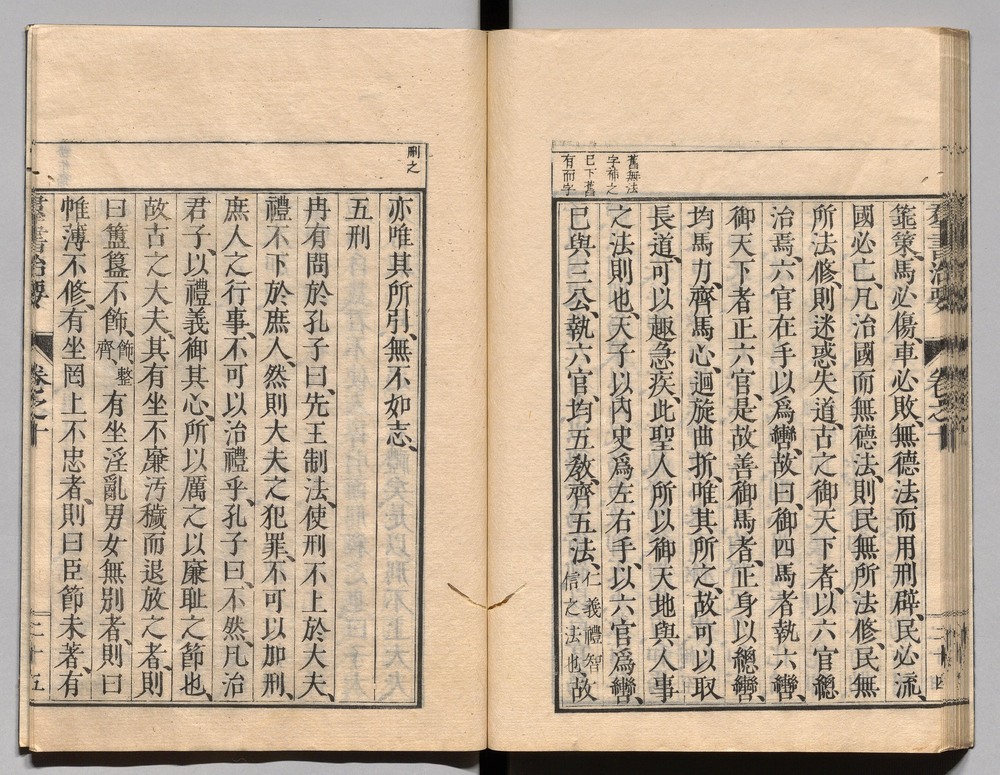 羣書治要 卷之十 二十四
箠策、馬必傷、車必敗、無德法而用刑辟、民必流、
國必亡、凡治國而無德法、則民無所法修、民無
所法修、則迷惑失道、古之御天下者、以六官總
治焉、六官在手以爲轡、故曰、御四馬者執六轡、
御天下者正六官、是故善御馬者、正身以總轡、
均馬力、齊馬心、迴旋曲折、唯其所之、故可以取
長道、可以趣急疾、此聖人所以御天地與人事
之法則也、天子以內史爲左右手、以六官爲轡、
已與三公、執六官、均五敎、齊五法、仁義禮智信之法也、故
舊無法
字補之
已下舊
有而字
刪之
亦唯其所引、無不如志、
五刑
冉有問於孔子曰、先王制法、使刑不上於大夫、
禮不下於庶人、然則大夫之犯罪、不可以加刑、
庶人之行事、不可以治禮乎、孔子曰、不然、凡治
君子、以禮義御其心、所以厲之以廉耻之節也、
故古之大夫、其有坐不廉汚穢而退放之者、則
曰簠簋不飾、飾、整齊、有坐淫亂男女無別者、則曰
帷薄不修、有坐罔上不忠者、則曰臣節未著、有
羣書治要 卷之十 二十五